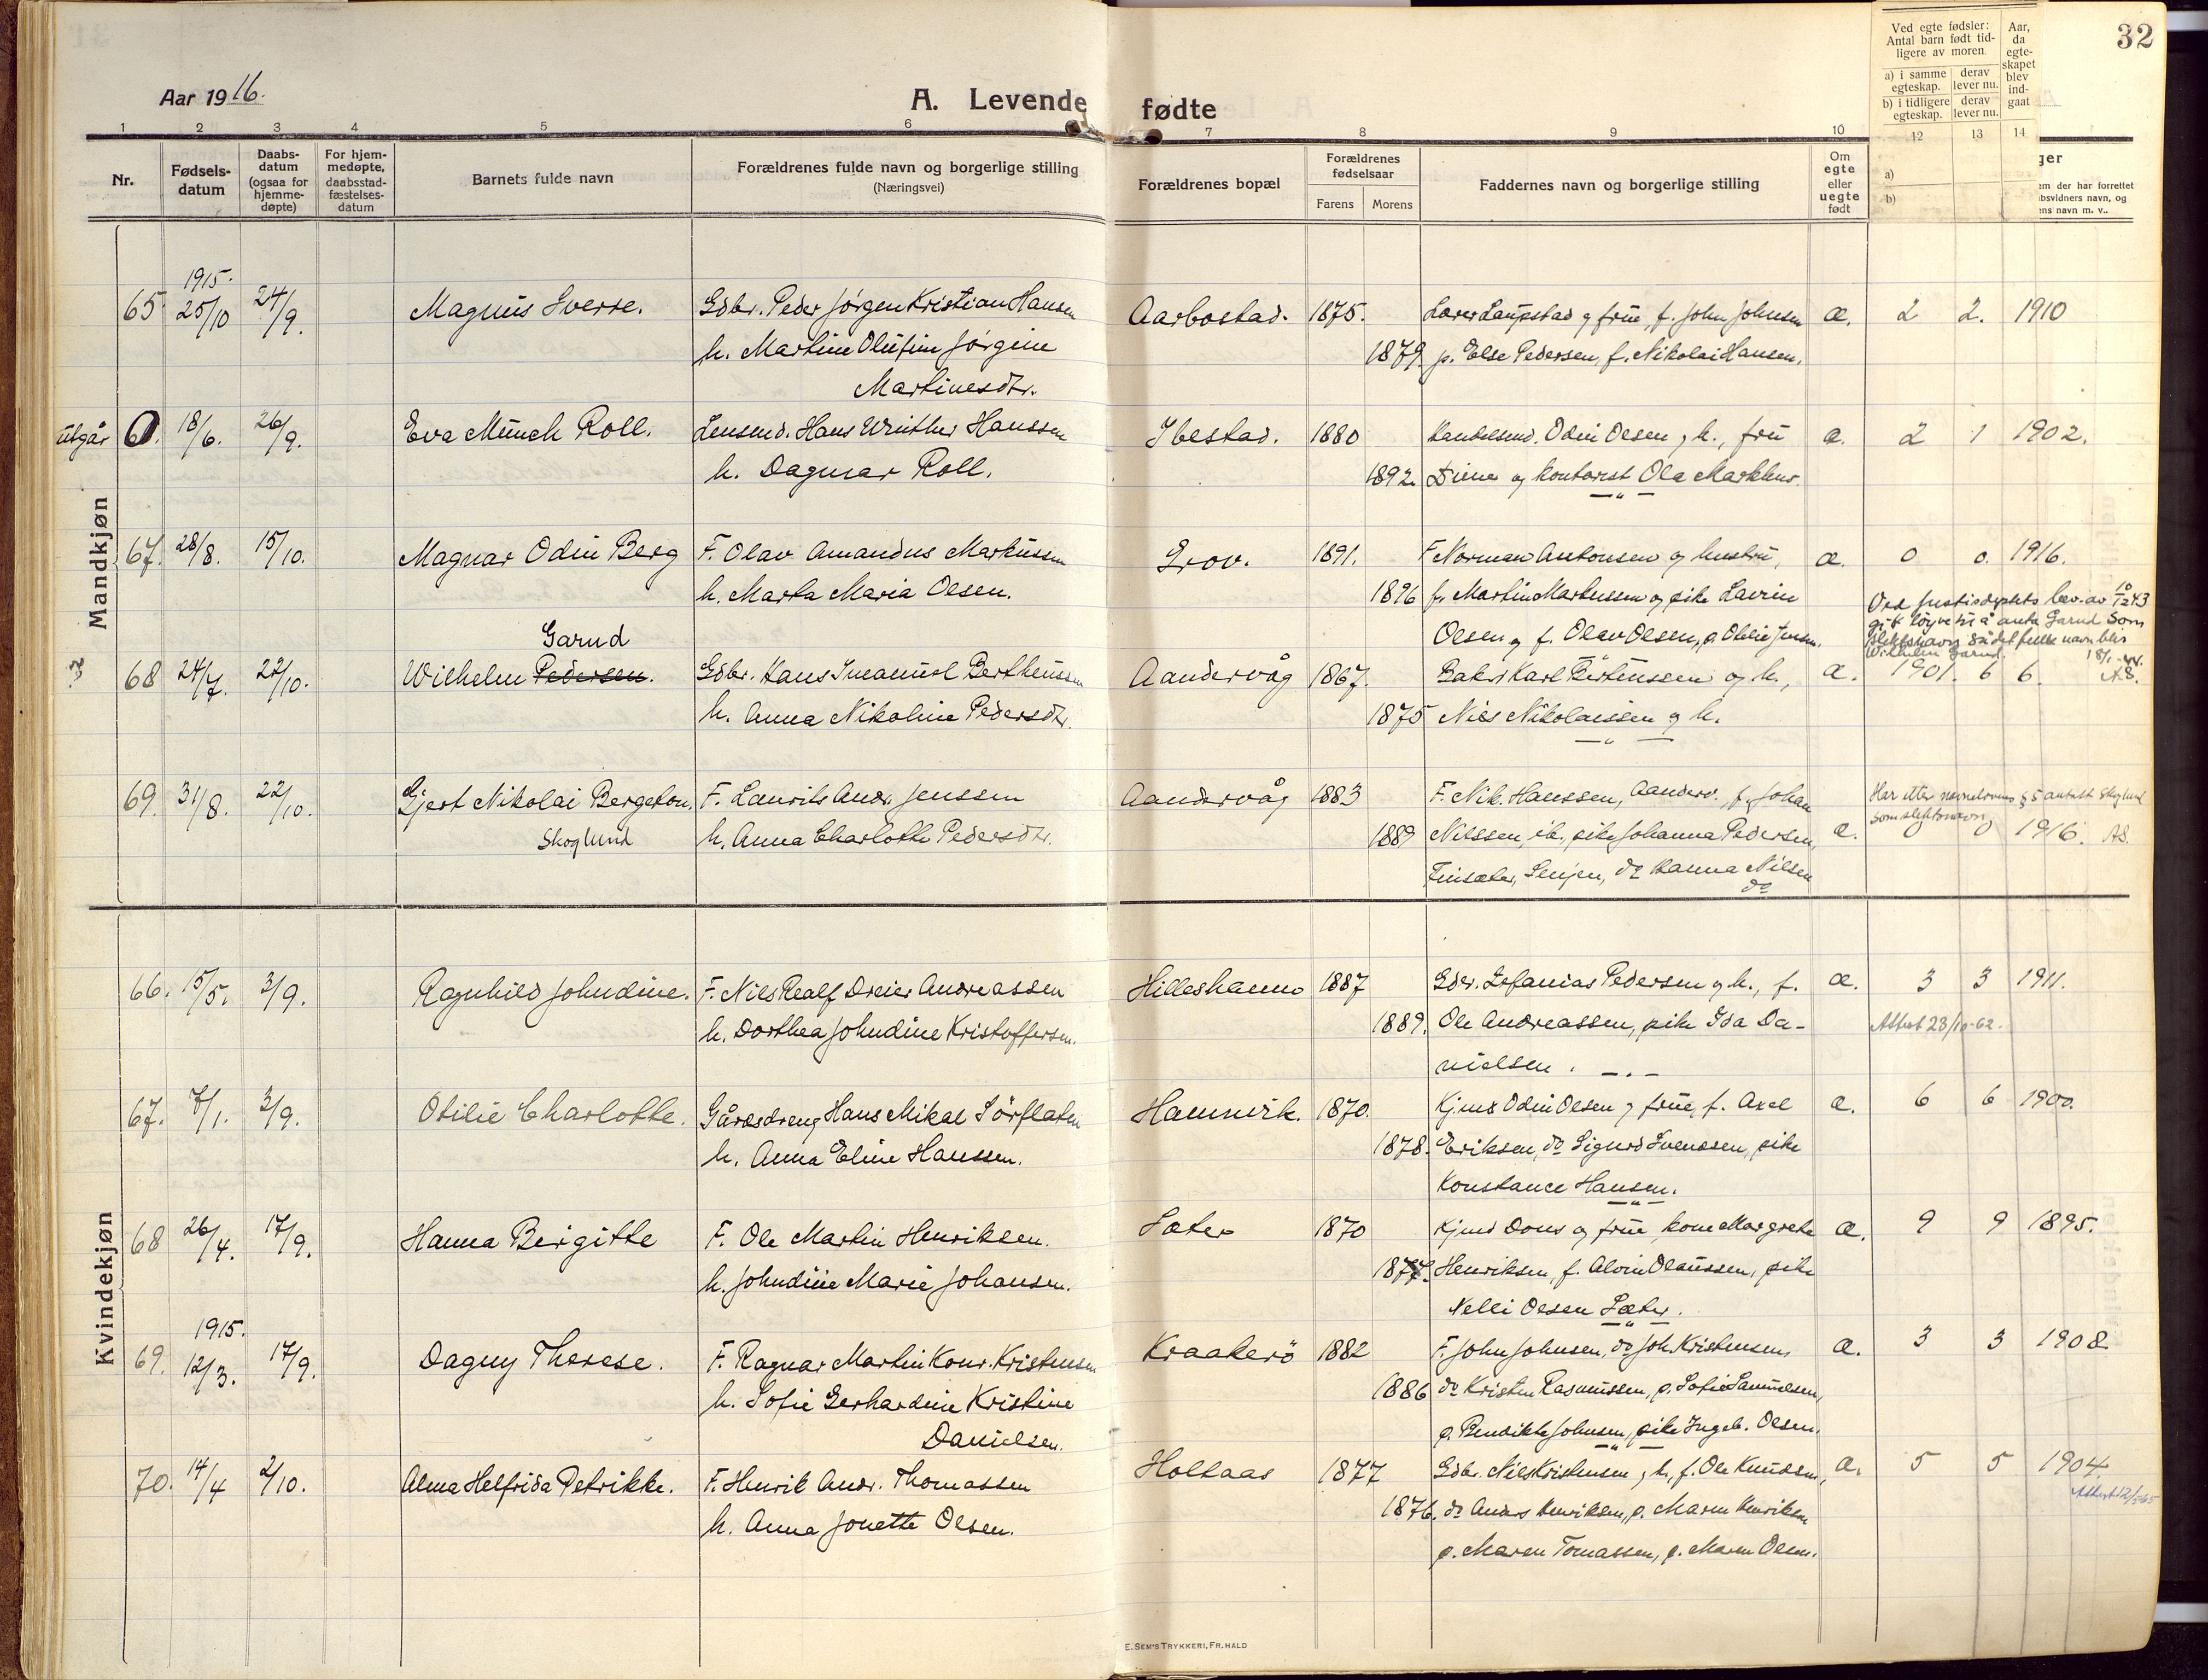 Aar 1916.
A. Levende fødte
32
Ved egte fødsler: Antal barn født tidligere av moren.
a) i samme egteskap.
derav lever nu.
b) i tidligere egteskap.
derav lever nu.
Aar, da egteskapet blev indgaat
1 2 3 4 5 6 7 8 9 10 12 13 14
Nr.
Fødselsdatum
Daabsdatum (ogsaa for hjemmedøpte)
For hjemmedøpte, daabsstadfæstelsesdatum
Barnets fulde navn
Forældrenes fulde navn og borgerlige stilling
(Næringsvei)
Forældrenes bopæl
Forældrenes fødselsaar
Farens Morens
Faddernes navn og borgerlige stilling
Om egte eller uegte født
a)
b)
ger
em der har forrettet
bsvidners navn, og
ens navn m. v..
Mandkjøn
1915.
65. 25/10 24/9. Magnus Sverre. Gdbr. Peder Jørgen Kristian Hansen Aarbostad. 1875. Lærer Laupstad og frue, f. John Johnsen æ. 2 2. 1910
h. Martine Olufine Jørgine 1879. p. Else Pedersen, f. Nikolai Hansen.
Martinesdtr.
utgår 18/6. 26/9. Eva Münch Roll. Lensmd. Hans Winther Hanssen Ibestad. 1880 Handelsmd. Odin Olsen og h., fru æ. 2 1 1902.
h. Dagmar Roll. 1892. og kontorist Ola Markhus.
67. 28/8. 15/10. Magnar Odin Berg F. Olav Amandus Markussen Grov. 1891. F. Norman Antonsen og hustru, æ. 0 0. 1916.
h. Marta Maria Olsen. 1896 f. Martin Markussen og pike Lavrin
Olsen og f. Olav Olsen, p. Otelie Jensen.
Ved Justisdeptets bev. av 10/12 43
gitt løyve til å anta Garnd som
slektsnavn så det fulle navn blir
Wilhelm Garnd. 18/1-44.
A.S.
Garnd
68 24/7. 22/10. Wilhelm Pedersen. Gdbr. Hans Imanuel Bertheussen Aandervåg 1867. Baker Karl Bertenssen og h., æ. 1901. 6 6.
h. Anna Nikoline Pedersdtr. 1875 Nils Nikolaissen og h.
69. 31/8. 22/10. Gjert Nikolai Bergeton. F. Laurits Andr. Jenssen Aandervåg 1883 F. Nik. Hanssen, Aanderv. f. Johan
Har etter navnelovens § 5 antatt Skoglund
som slektsnavn
Skoglund h. Anna Charlotte Pedersdtr. 1889 Nilssen, ib. pike Johanna Pedersen æ. 1916. AS.
Finsæter, Senjen, do Hanna Nilsen
do
Kvindekjøn
66. 15/5. 3/9. Ragnhild Johndine. F. Nils Realf Dreier Andreassen Hilleshamn 1887 Gdbr. Zefanias Pedersen og h., f. æ. 3 3 1911.
h. Dorthea Johndine Kristoffersen. 1889. Ole Andreassen, pike Ida Da- Attest 23/10-62.
nielsen.
67. 7/1. 3/9. Otilie Charlotte. Gårdsdreng Hans Mikal Sørflaten Hamnvik. 1870. Kjmd Odin Olsen og frue, f. Axel æ. 6 6 1900.
h. Anna Eline Hanssen. 1878. Eriksen, do Sigurd Svendsen, pike
Konstance Hansen.
68 26/4. 17/9. Hanna Bergitte F. Ole Martin Henriksen. Sæter 1870 Kjmd Dons og frue, kone Margrete æ. 9 9 1895.
h. Johndine Marie Johansen. 1877. Henriksen, f. Alvin Olaussen, pike
Nelli Olsen Sæter.
1915.
69. 12/3. 17/9. Dagny Therese. F. Ragnar Martin Konr. Kristensen Kraakerö 1882 F. John Johnsen, do Joh. Kristensen, æ. 3 3 1908.
h. Sofie Gerhardine Kristine 1886 do Kristen Rasmussen, p. Sofie Samuelsen,
Danielsen. p. Bendikte Johnsen, pike Ingeb. Olsen.
70. 14/4 2/10. Alma Helfrida Petrikke. F. Henrik Andr. Thomassen Holtaas 1877 Gdbr. Nils Kristensen og h., f. Ole Knudsen, æ. 5 5 1904.
h. Anna Jonette Olsen. 1876. do Anders Henriksen, p. Maren Henriksen
p. Maren Tomassen, p. Maren Olsen.
E. SEM'S TRYKKERI, FR.HALD